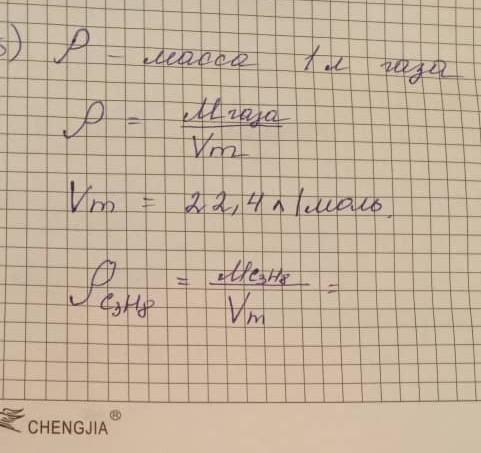 5) ρ – масса 1 л газа
ρ = Mгаза / Vm
Vm = 22,4 л/моль.
ρC₃H₈ = MC₃H₈ / Vm =
CHENGJIA®